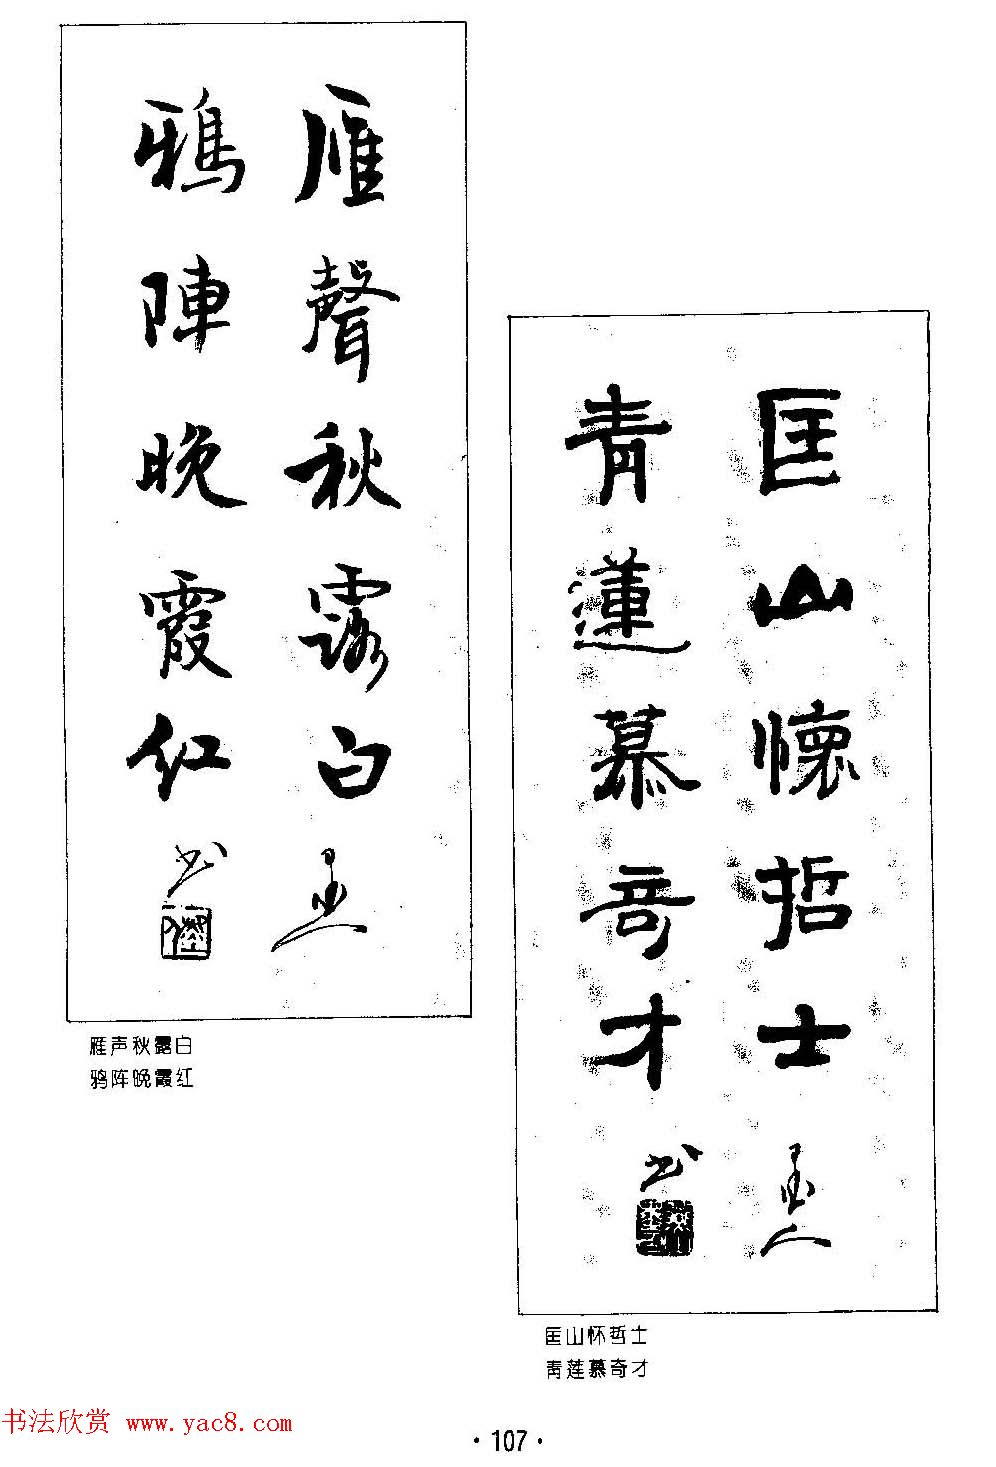 雁聲秋露白
鴉陣晚霞红
书
雁声秋露白
鸦阵晚霞红
匡山懷哲士
青蓮慕奇才
书
匡山怀哲士
青莲慕奇才
书法欣赏 www.yac8.com
·107·